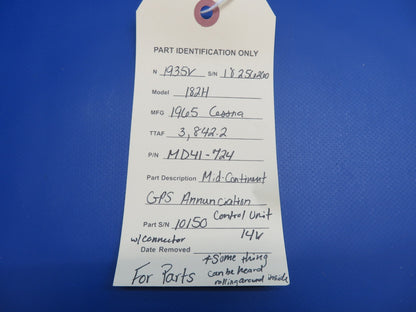 PART IDENTIFICATION ONLY
N 1935V S/N 18256200
Model 182H
MFG 1965 Cessna
TTAF 3,842.2
P/N MD41-724
Part Description Mid-Continent
GPS Annunciation
Control Unit
Part S/N 10150
14V
w/connector
Date Removed
+Something
can be heard
rolling around inside
For Parts